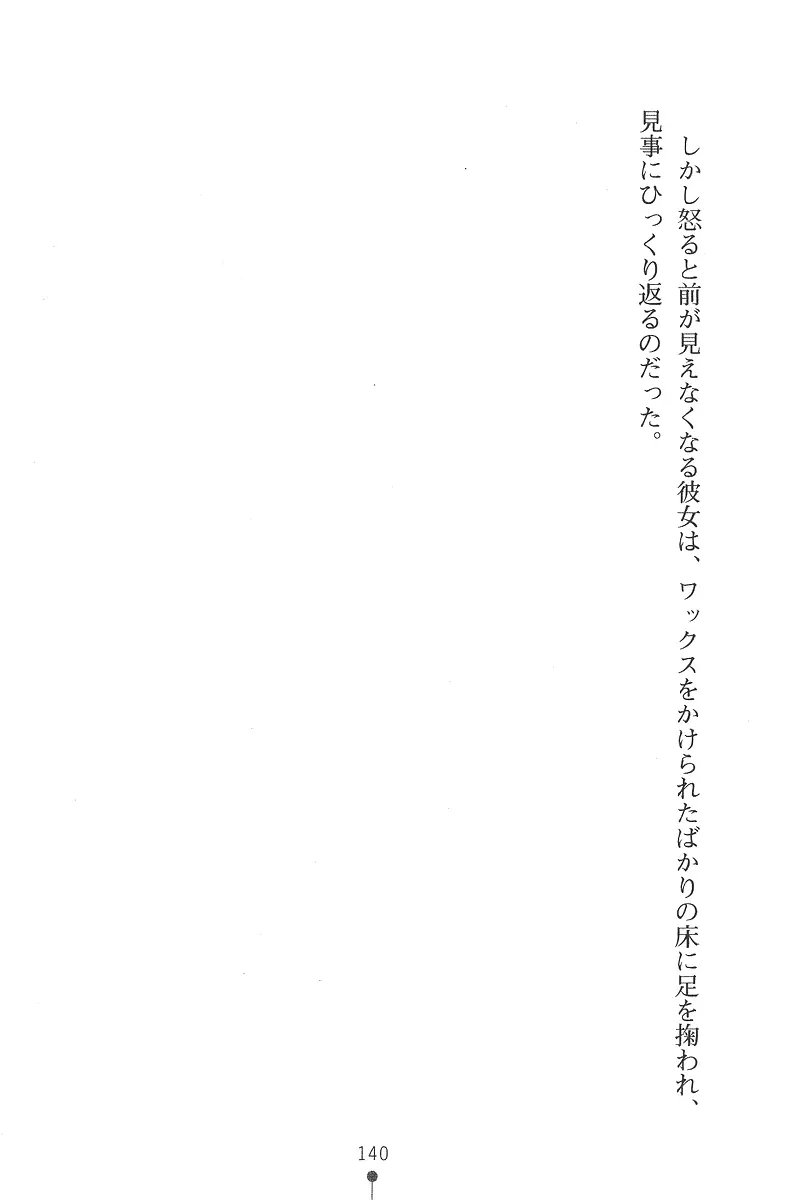 しかし怒ると前が見えなくなる彼女は、ワックスをかけられたばかりの床に足を掬われ、
見事にひっくり返るのだった。
140